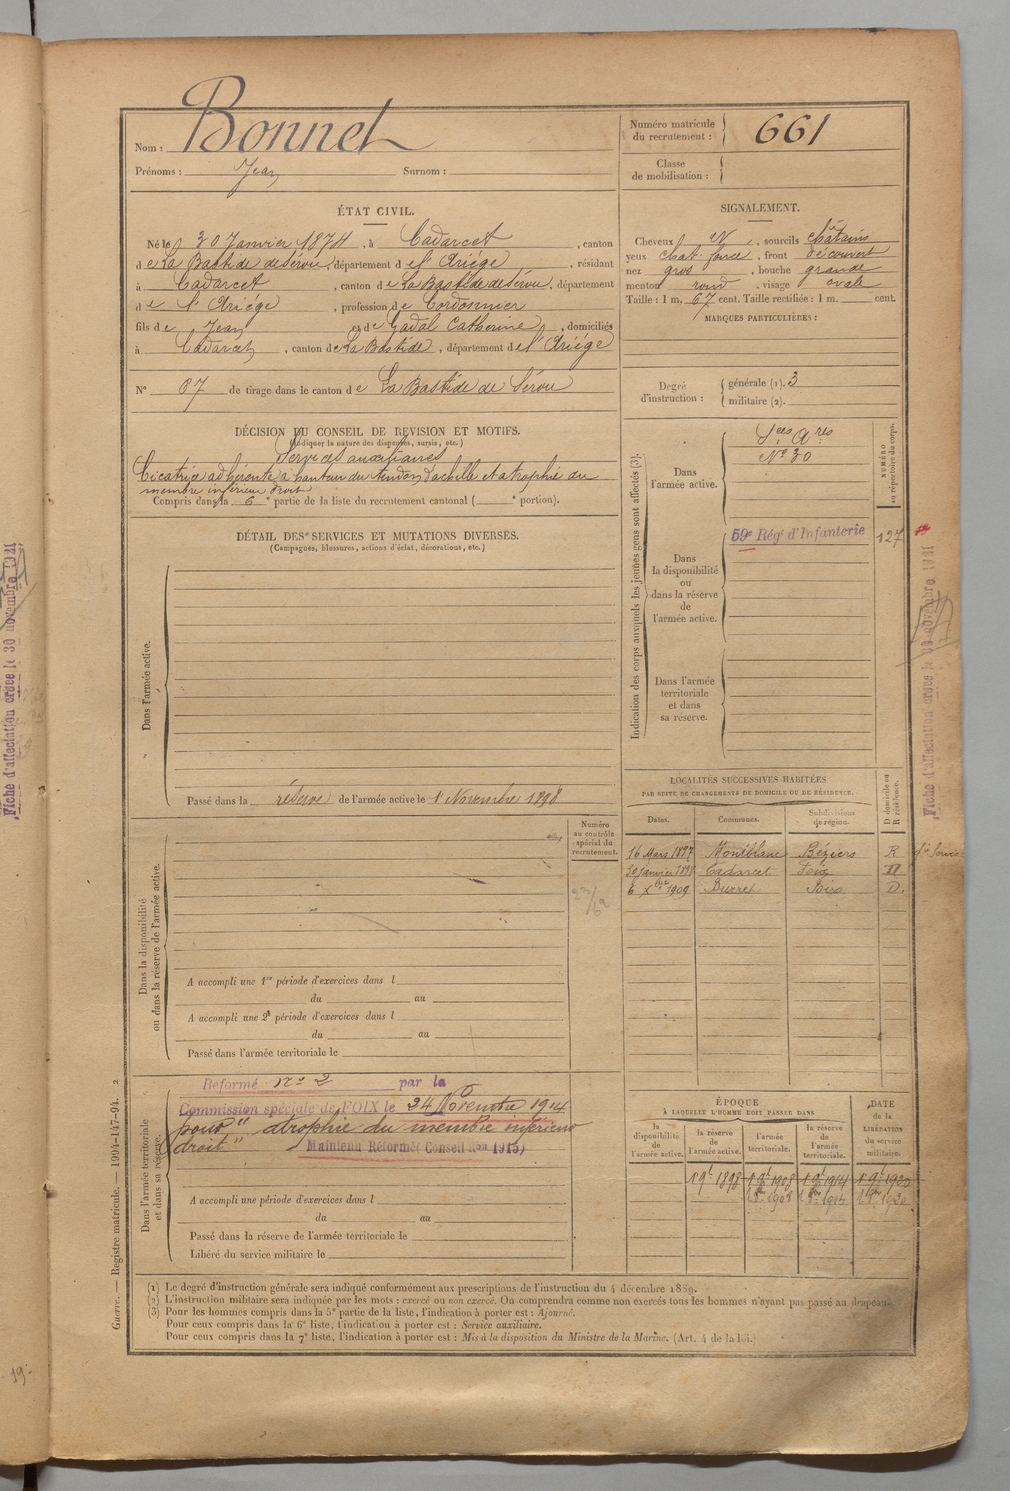 Nom : Bonnet
Prénoms : Jean Surnom :
Numéro matricule du recrutement : 661
Classe de mobilisation :
ÉTAT CIVIL.
Né le 30 Janvier 1874, à Cadarcet, canton
de La Bastide de Sérou, département de l'Ariége, résidant
à Cadarcet, canton de La Bastide de Sérou, département
de l'Ariége, profession de Cordonnier
fils de Jean et de Gadal Catherine, domiciliés
à Cadarcet, canton de La Bastide, département de l'Ariége
N° 67 de tirage dans le canton de La Bastide de Sérou
SIGNALEMENT.
Cheveux N, sourcils châtains
yeux chat. foncé, front découvert
nez gros, bouche grande
menton rond, visage ovale
Taille : 1 m. 67 cent. Taille rectifiée : 1 m. cent.
MARQUES PARTICULIÈRES :
Degré d'instruction : générale (1). 3
militaire (2).
DÉCISION DU CONSEIL DE RÉVISION ET MOTIFS.
(Indiquer la nature des dispenses, sursis, etc.)
Services auxiliaires
Cicatrice adhérente à hauteur du tendon d'achille et atrophie du
membre inférieur droit
Compris dans la 6e partie de la liste du recrutement cantonal ( e portion).
DÉTAIL DES SERVICES ET MUTATIONS DIVERSES.
(Campagnes, blessures, actions d'éclat, décorations, etc.)
Dans l'armée active.
Passé dans la réserve de l'armée active le 1er Novembre 1898
Indication des corps auxquels les jeunes gens sont affectés (3).
NUMÉRO
au répertoire du corps.
Dans
l'armée active.
Sces Ares
N° 30
Dans
la disponibilité
ou
dans la réserve
de
l'armée active.
59e Régt d'Infanterie
127
Dans l'armée
territoriale
et dans
sa réserve.
Fiche d'affectation créée le 30 novembre 1921
Fiche d'affectation créée le 30 novembre 1921
LOCALITÉS SUCCESSIVES HABITÉES
PAR SUITE DE CHANGEMENTS DE DOMICILE OU DE RÉSIDENCE.
D domicile ou R résidence.
Dates. Communes. Subdivisions de région.
16 Mars 1897 Montblanc Béziers R
30 Janvier 1898 Cadarcet Foix D
6 Xbre 1909 Foix D.
Dans la disponibilité
ou dans la réserve de l'armée active.
Numéro
au contrôle
spécial du
recrutement.
A accompli une 1re période d'exercices dans l
du au
A accompli une 2e période d'exercices dans l
du au
Passé dans l'armée territoriale le
Dans l'armée territoriale
et dans sa réserve.
Reformé n° 2 par la
Commission spéciale de FOIX le 24 Novembre 1914
pour " atrophie du membre inférieur
droit "
Maintenu Réformé ( Conseil Ron 1915)
A accompli une période d'exercices dans l
du au
Passé dans la réserve de l'armée territoriale le
Libéré du service militaire le
ÉPOQUE
À LAQUELLE L'HOMME DOIT PASSER DANS
DATE
de la
LIBÉRATION
du service
militaire.
la disponibilité de l'armée active.
la réserve de l'armée active.
l'armée territoriale.
la réserve de l'armée territoriale.
1 9bre 1898 1 9bre 1908 1 9bre 1914 1 9bre 1920
1908 1914 1920
(1) Le degré d'instruction générale sera indiqué conformément aux prescriptions de l'instruction du 4 décembre 1889.
(2) L'instruction militaire sera indiquée par les mots : exercé ou non exercé. On comprendra comme non exercés tous les hommes n'ayant pas passé au drapeau.
(3) Pour les hommes compris dans la 5e partie de la liste, l'indication à porter est : Ajourné.
Pour ceux compris dans la 6e liste, l'indication à porter est : Service auxiliaire.
Pour ceux compris dans la 7e liste, l'indication à porter est : Mis à la disposition du Ministre de la Marine. (Art. 4 de la loi.)
Guerre. — Registre matricule. — 1994-147-94. 2
19